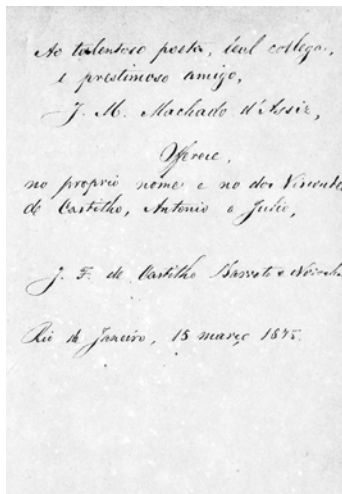 Ao talentoso poeta, leal collega,
e prestimoso amigo,
J. M. Machado d'Assiz,
Offerece,
no proprio nome e no dos Viscondes
de Castilho, Antonio e Julio,
J. F. de Castilho Barreto e Noronha
Rio de Janeiro, 15 março 1875.